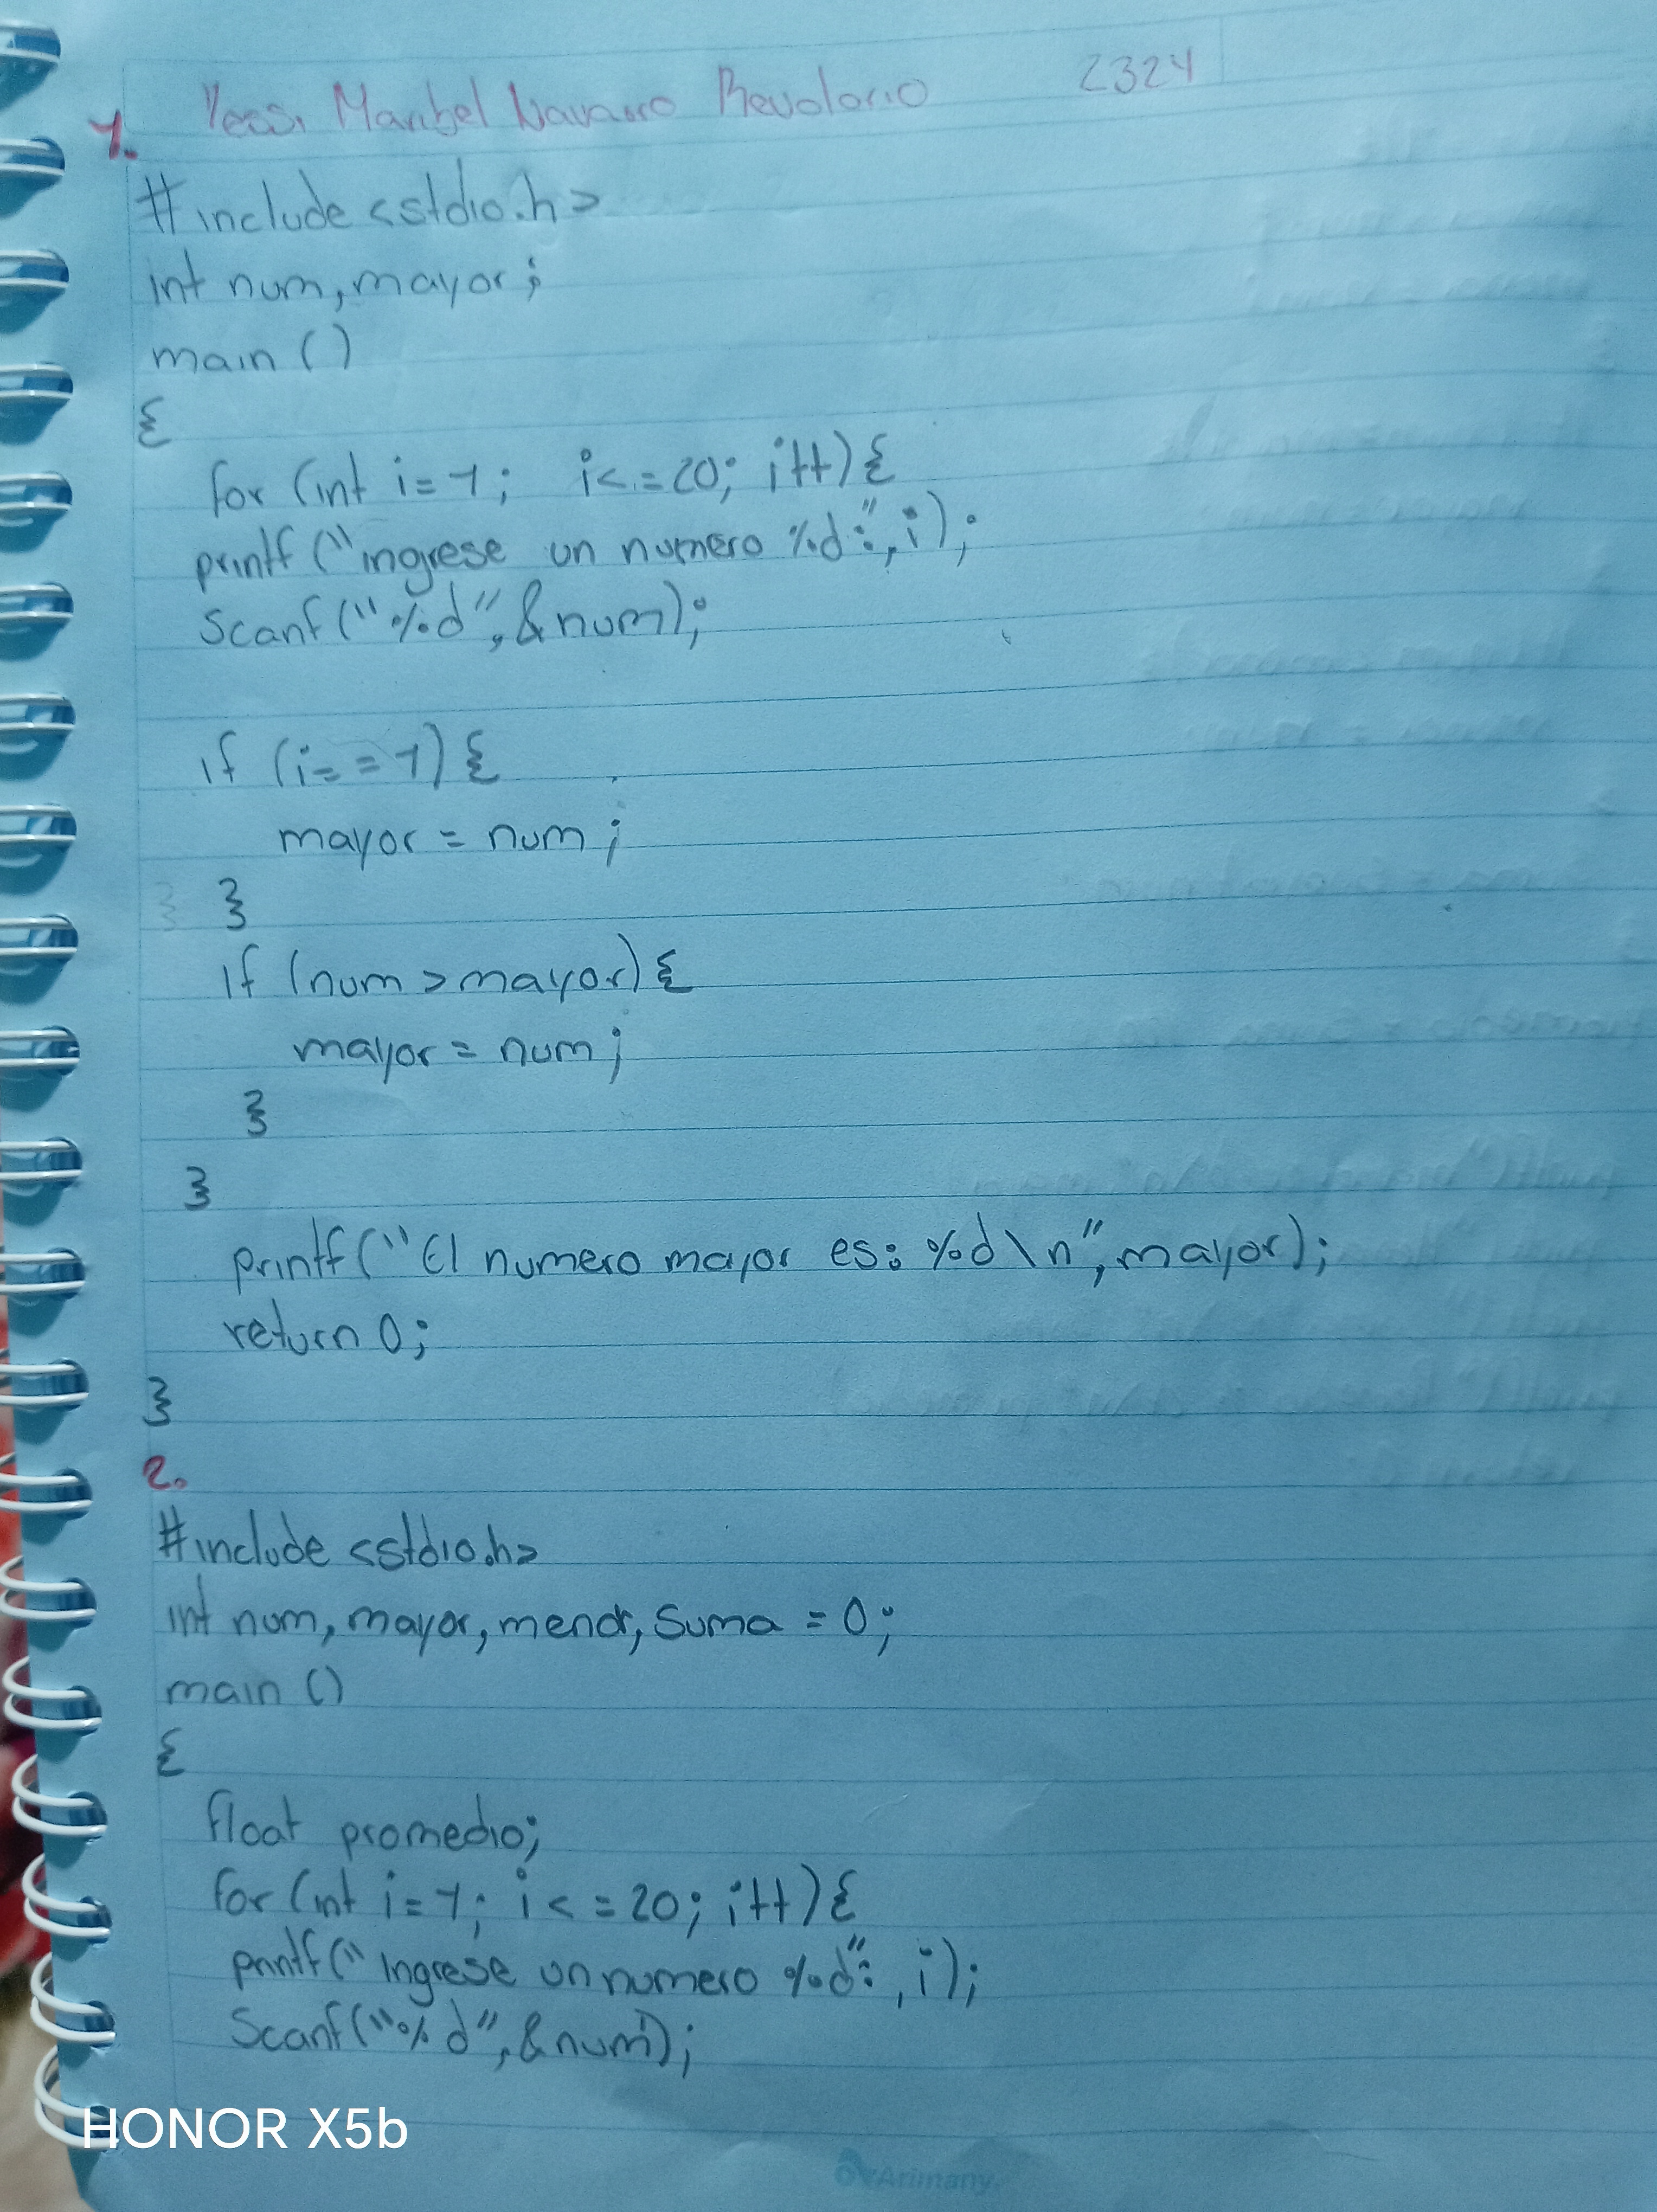 Yessi Maribel Navarro Revolorio 2324
1.
#include <stdio.h>
int num, mayor;
main ()
{
for (int i=1; i<=20; i++){
printf("ingrese un numero %d:", i);
Scanf("%d", &num);
if (i==1){
mayor = num;
}
if (num > mayor){
mayor = num;
}
}
printf("El numero mayor es: %d\n", mayor);
return 0;
}
2.
#include <stdio.h>
int num, mayor, menor, suma = 0;
main ()
{
float promedio;
for (int i=1; i<=20; i++){
printf("Ingrese un numero %d": , i);
Scanf("%d", &num);
HONOR X5b
Arimany